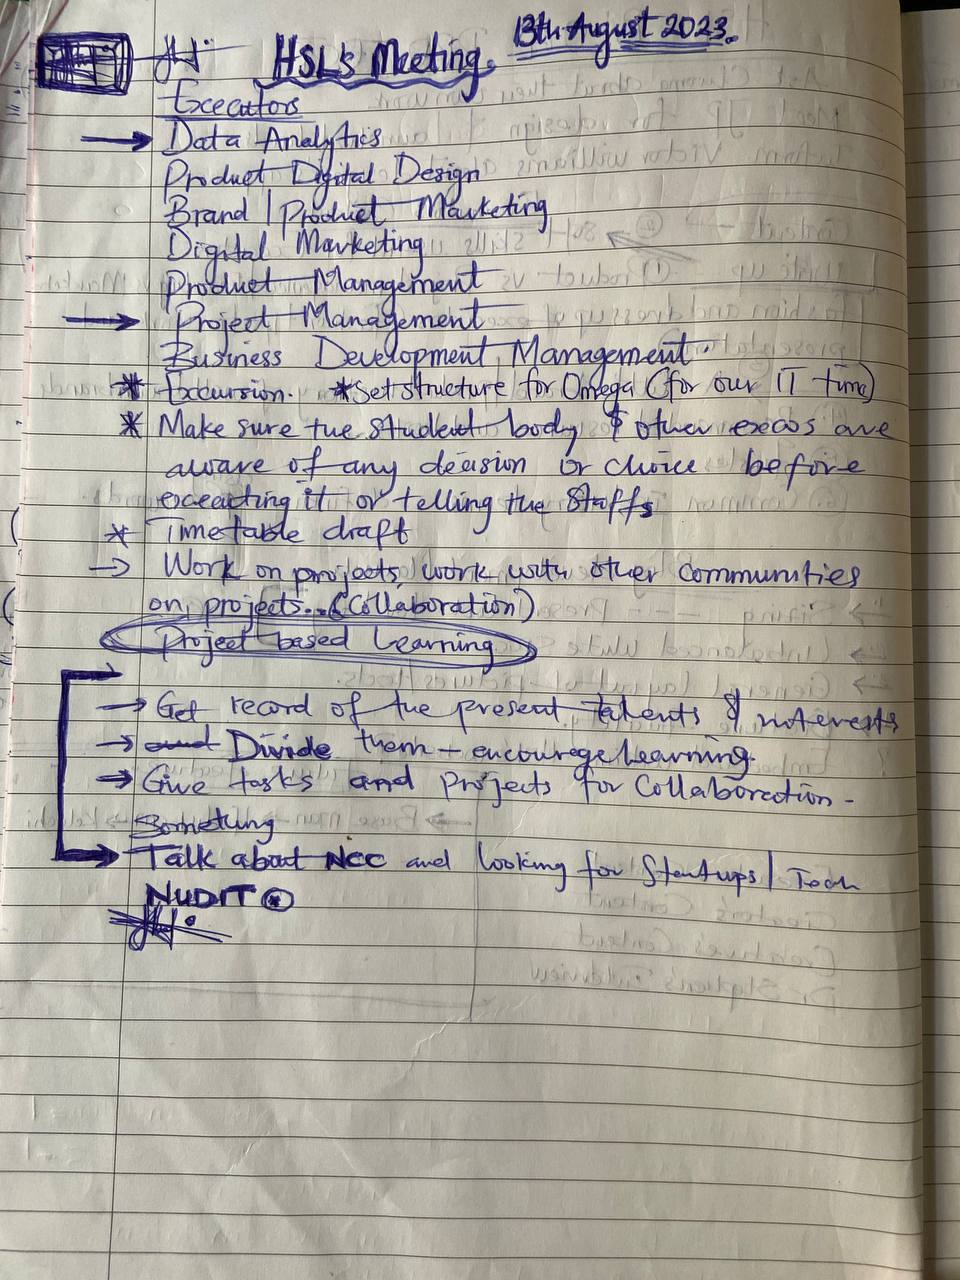 HSLs Meeting. 13th August 2023.
Excecutors
→ Data Analytics
Product Digital Design
Brand | Product Marketing
Digital Marketing
Product Management
→ Project Management
Business Development Management.
* Excursion. * Set structure for Omega (for our IT time)
* Make sure the student body & other excos are
aware of any decision or choice before
excecuting it or telling the Staffs
* Timetable draft
→ Work on projects, work with other communities
on projects... (Collaboration)
Project based Learning
→ Get record of the present talents &
→ Divide them - encourage learning.
→ Give tasks and projects for Collaboration -
Something
→ Talk about NCC and looking for Startups | Tech
NUDIT